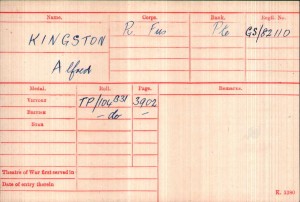 Name. Corps. Rank. Regtl. No.
KINGSTON R. Fus Pte GS/82110
Alfred
Medal. Roll. Page. Remarks.
VICTORY TP/104B31 3902
BRITISH -do- -
STAR
Theatre of War first served in
Date of entry therein
K. 1380